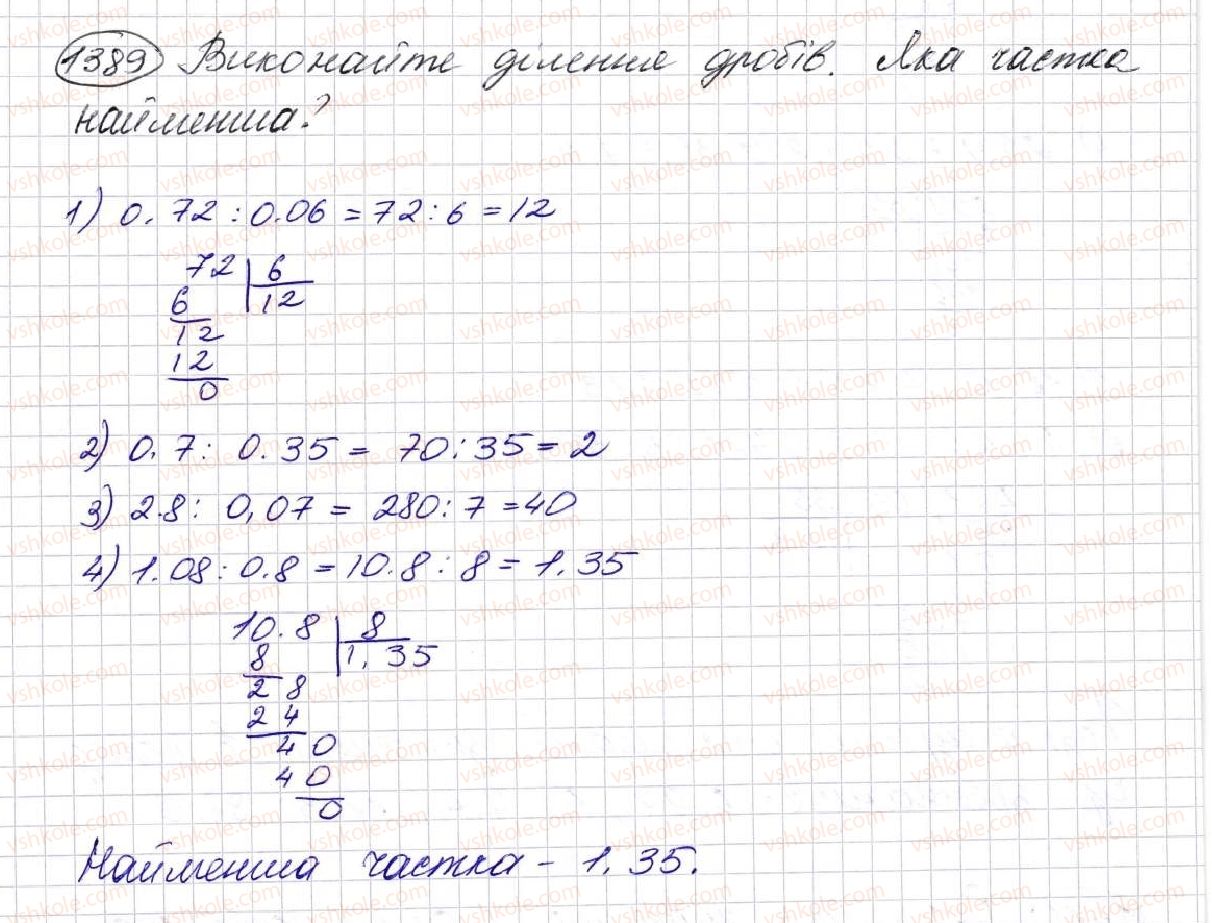 1389 Виконайте ділення дробів. Яка частка
найменша?
1) 0.72 : 0.06 = 72 : 6 = 12
72 6
6 12
12
12
0
2) 0.7 : 0.35 = 70 : 35 = 2
3) 2.8 : 0,07 = 280 : 7 = 40
4) 1.08 : 0.8 = 10.8 : 8 = 1.35
10.8 8
8 1,35
28
24
40
40
0
Найменша частка - 1.35.
vshkole.com